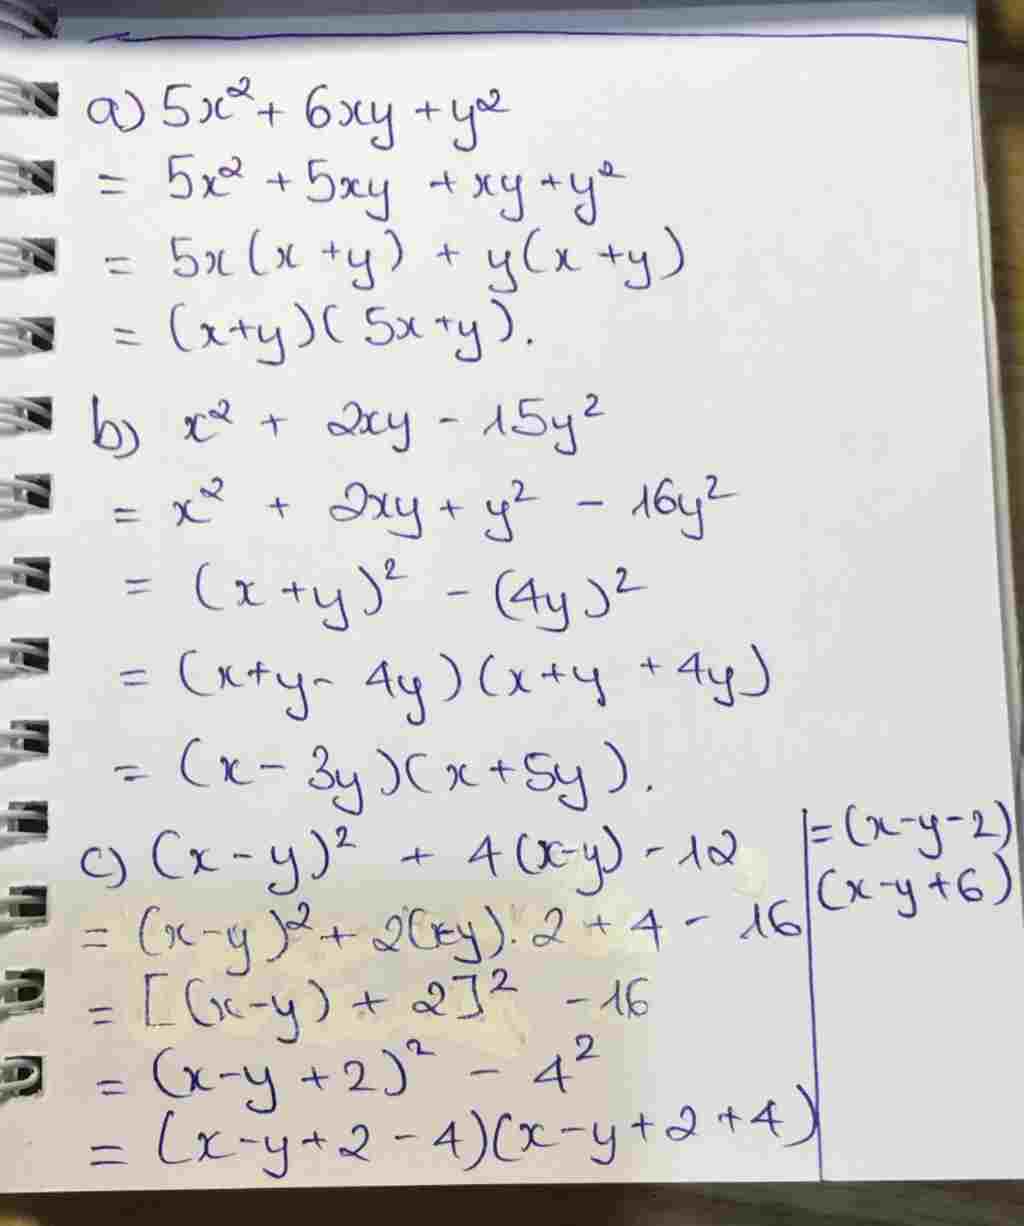 a) 5x² + 6xy + y²
= 5x² + 5xy + xy + y²
= 5x(x + y) + y(x + y)
= (x+y)(5x+y).
b) x² + 2xy - 15y²
= x² + 2xy + y² - 16y²
= (x + y)² - (4y)²
= (x+y - 4y)(x+y + 4y)
= (x - 3y)(x + 5y).
c) (x - y)² + 4(x-y) - 12
= (x-y)² + 2(x-y).2 + 4 - 16
= [(x-y) + 2]² - 16
= (x-y + 2)² - 4²
= (x-y+2-4)(x-y+2+4)
= (x-y-2)
(x-y+6)